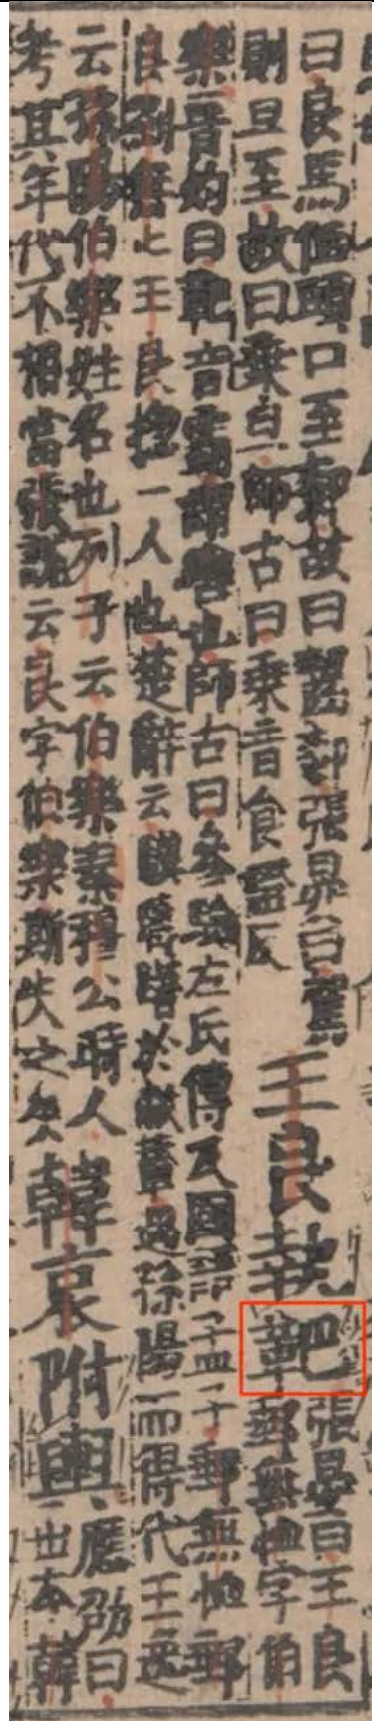 曰良馬低頭口至膝故曰齧膝張晏曰駕
則旦至故曰乘旦師古曰乘音食證反
王良執靶
張晏曰王良
郵無恤字伯
樂晉灼曰靶音霸謂轡也師古曰參驗左氏傳及國語孟子郵無恤郵
良劉無止王良揔一人也楚辭云驥躊躇於敝輦遇孫陽而得代王逸
云孫陽伯樂姓名也列子云伯樂秦穆公時人
考其年代不相當張說云良字伯樂斯失之矣
韓哀附輿
應劭曰
世本韓